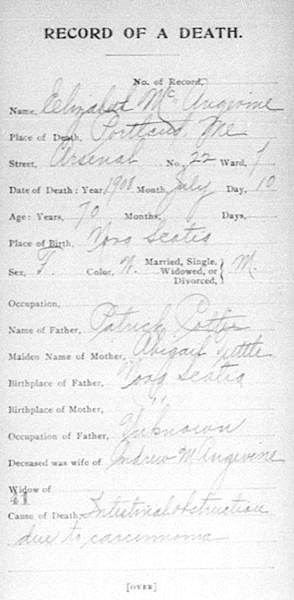 RECORD OF A DEATH.
No. of Record,
Name, Elizabeth Mc Angivine
Place of Death, Portland, Me
Street, Arsenal No. 22 Ward, 7
Date of Death: Year, 1908 Month, July Day, 10
Age: Years, 70 Months, Days,
Place of Birth, Nova Scotia
Sex, F. Color, W. Married, Single, Widowed, or Divorced, } M.
Occupation,
Name of Father, Patrick Potter
Maiden Name of Mother, Abigail Tuttle
Birthplace of Father, Nova Scotia
Birthplace of Mother, "
Occupation of Father, Unknown
Deceased was wife of Andrew McAngivine
Widow of
41
Cause of Death, Intestinal obstruction
due to carcinmoma
[OVER]